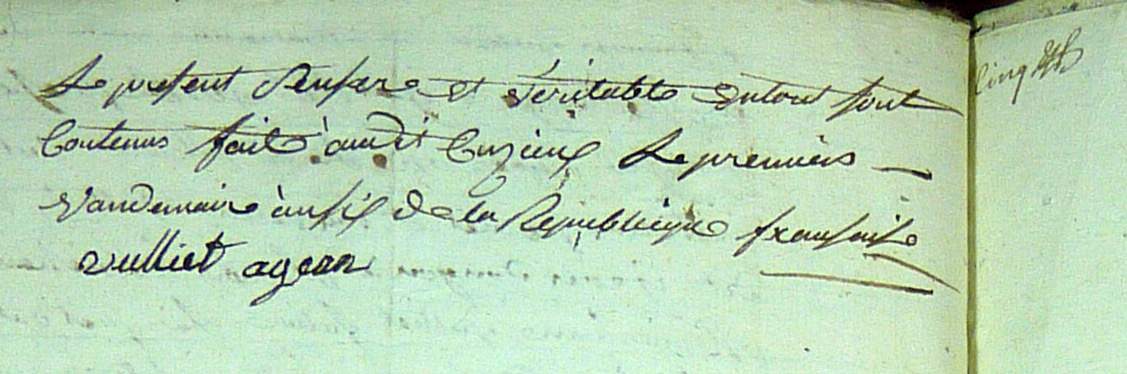 Le present sincere et veritable en tout son
Contenus fait audit Cuzieux Le premiers
Vandemaire an six de la Republique francaise
vulliet agean
cinq